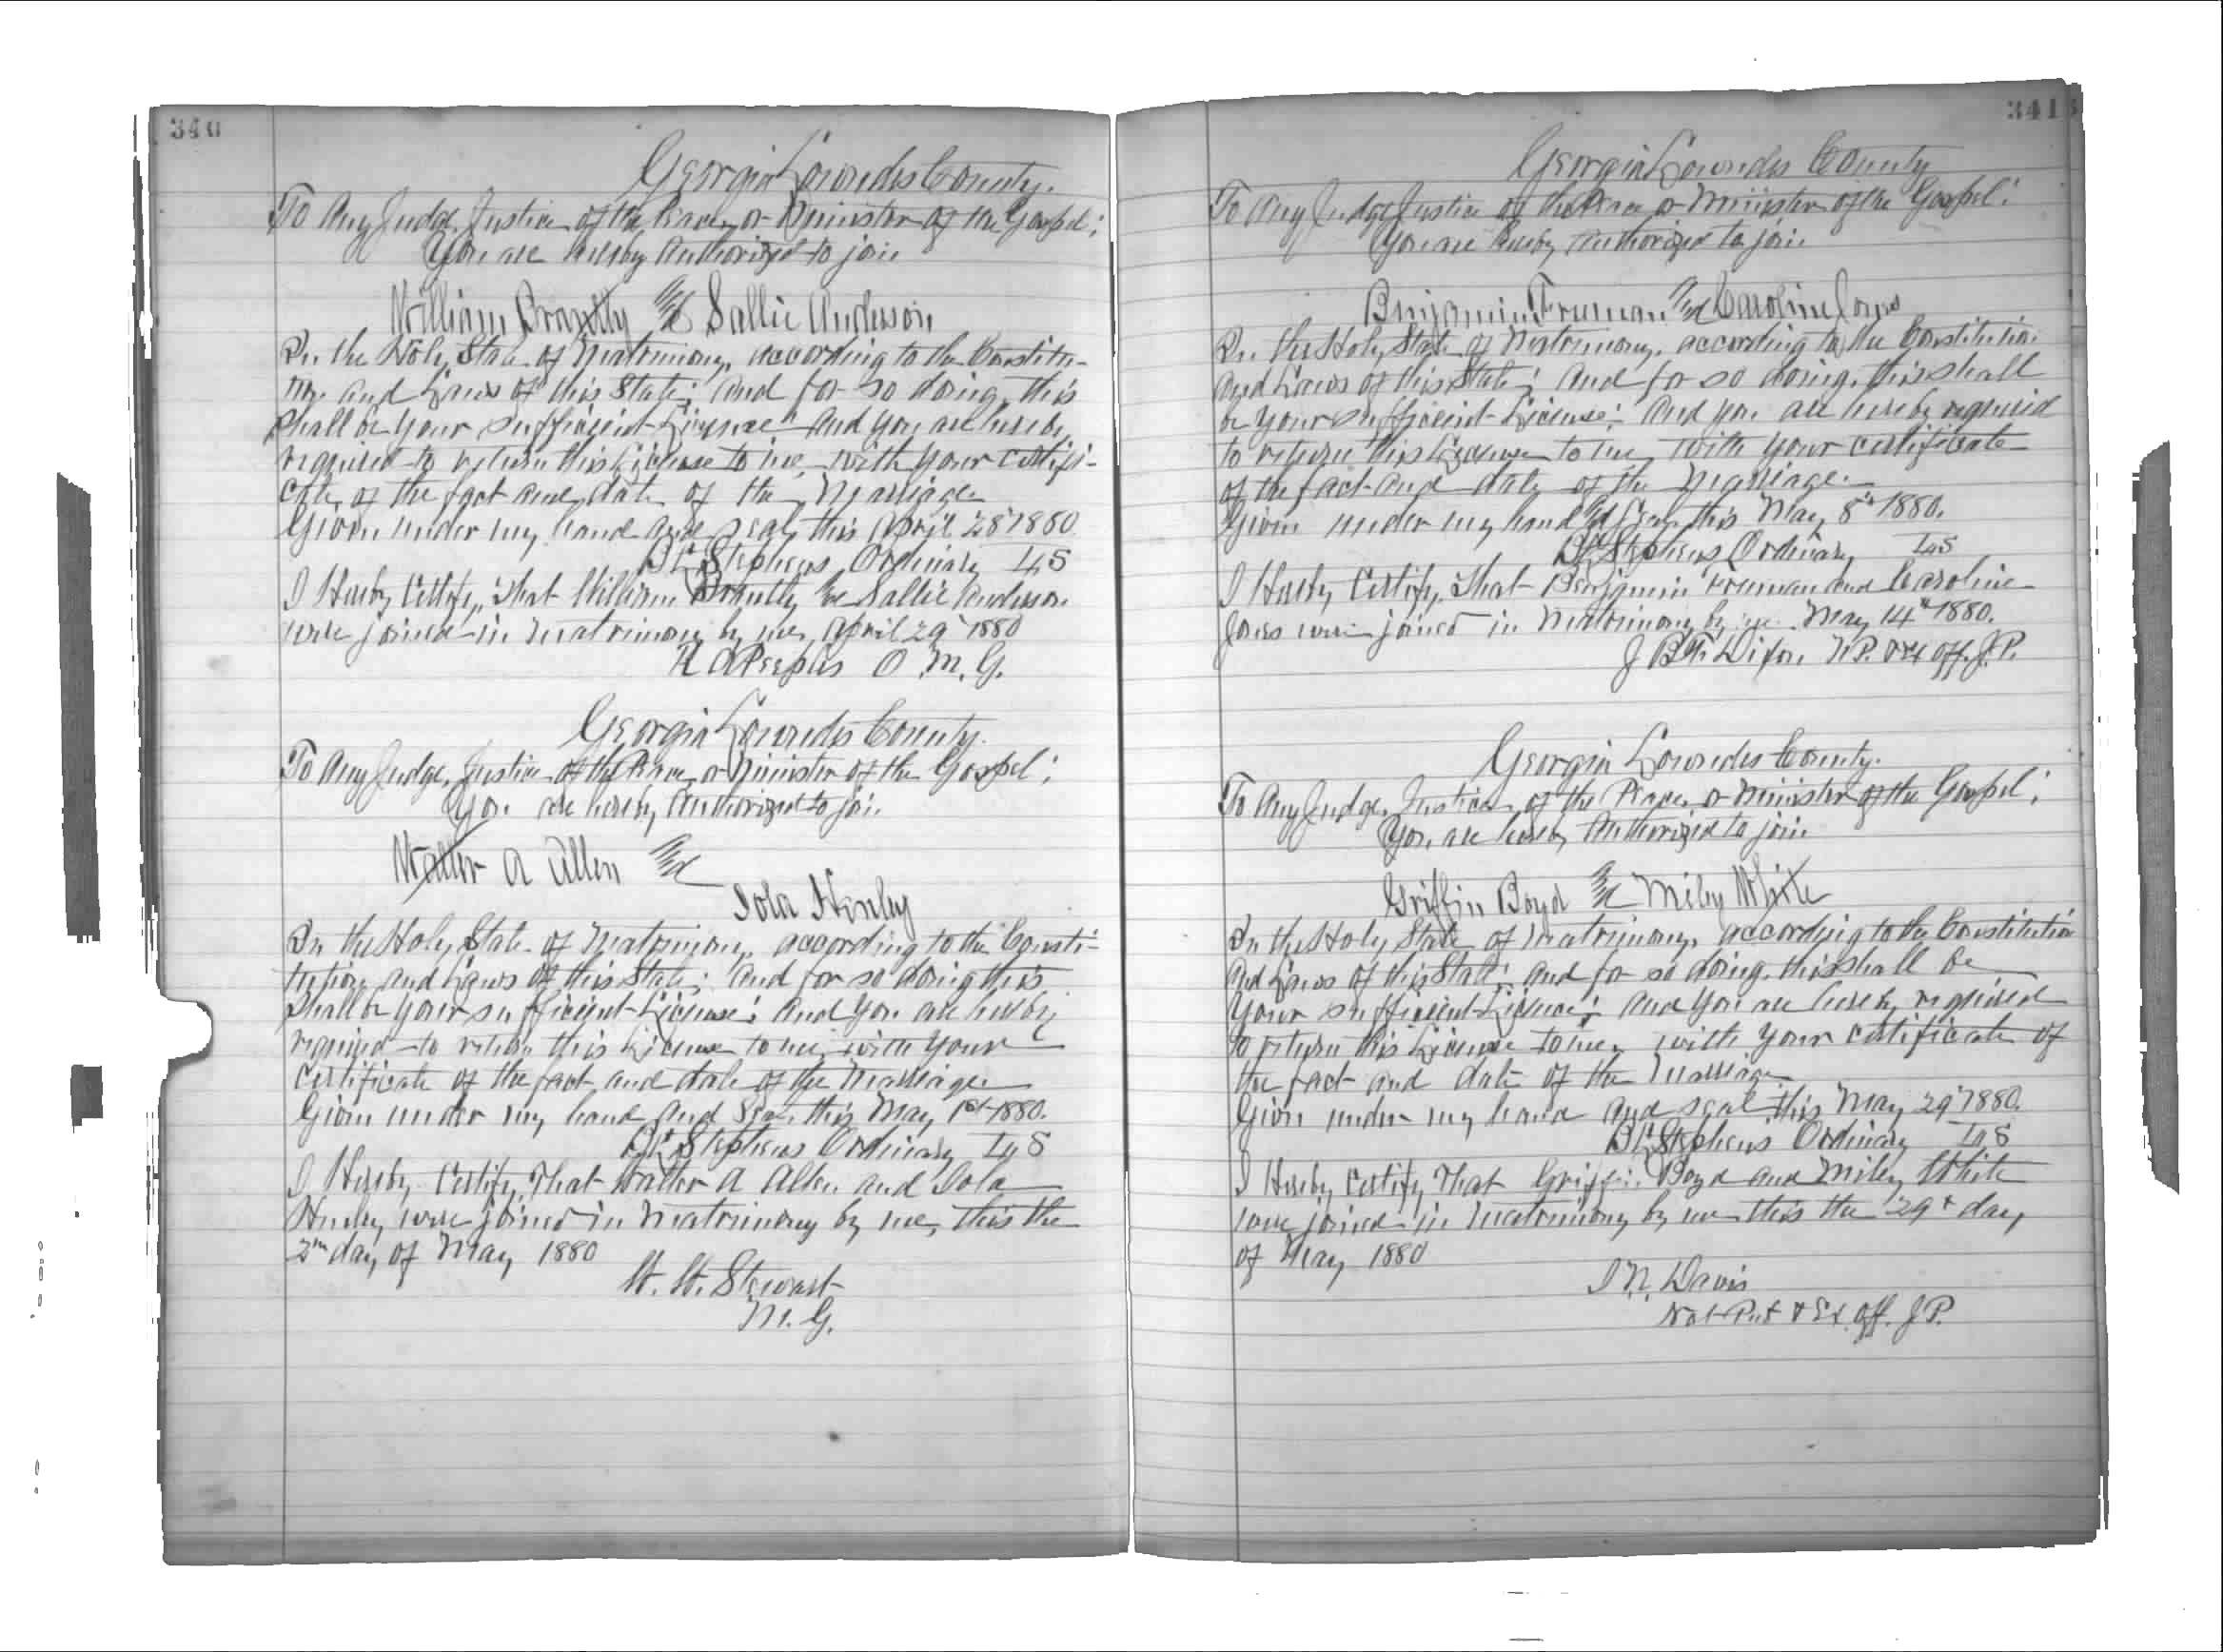 340
Georgia Lowndes County.
To Any Judge, Justice of the Peace, or Minister of the Gospel;
You are hereby Authorized to join
William Brantly And Sallie Anderson
In the Holy State of Matrimony, according to the Constitu-
tion and Laws of this State; And for so doing, this
shall be your sufficient License: And you are hereby
required to return this License to me, with your certifi-
cate of the fact and date of the Marriage.
Given under my hand and seal, this April 28" 1880
Stephens, Ordinary L,S
I Hereby Certify, That William Brantly & Sallie Anderson
were joined in Matrimony by me, April 29" 1880
Peeples O. M. G.
Georgia Lowndes County.
To Any Judge, Justice of the Peace, or Minister of the Gospel;
You are hereby Authorized to join
Walter A Allen And
Iola Henley
In the Holy State of Matrimony, according to the Consti-
tution and Laws of this State; And for so doing this
shall be your sufficient License: And you are hereby
required to return this License to me, with your
certificate of the fact and date of the Marriage.
Given under my hand and Seal this May 1st 1880.
Stephens Ordinary L,S
I Hereby Certify, That Walter A Allen and Iola
Henley were joined in Matrimony by me, this the
2nd day of May 1880
H. H. Stewart
M. G.
341
Georgia Lowndes County
To Any Judge, Justice of the Peace or Minister of the Gospel;
You are hereby Authorized to join
Benjamin Freeman And Caroline Jones
In the Holy State of Matrimony, according to the Constitution
And Laws of this State; And for so doing, this shall
be your sufficient License: And you are hereby required
to return this License to me, with your certificate
of the fact and date of the Marriage.
Given under my hand And Seal this May 8th 1880.
Stephens, Ordinary L,S
I Hereby Certify, That Benjamin Freeman and Caroline
Jones were joined in Matrimony by me May 14th 1880.
J B F. Dixon, N.P. & Ex Off. J.P.
Georgia Lowndes County.
To Any Judge, Justice of the Peace, or Minister of the Gospel;
You are hereby Authorized to join
Griffin Boyd And Miley White
In the Holy State of Matrimony, according to the Constitution
And Laws of this State; And for so doing, this shall be
your sufficient License; And you are hereby required
to return this License to me, with your certificate of
the fact and date of the Marriage
Given under my hand and seal this May 29" 1880.
Stephens Ordinary L,S
I Hereby Certify That Griffin Boyd and Miley White
were joined in Matrimony by me this the 29th day
of May 1880
I. N. Davis
Not Pub & Ex. Off. J P.